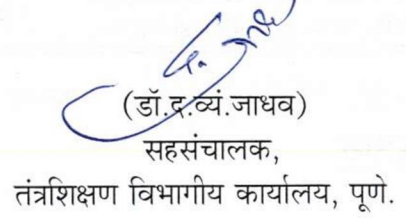 (डॉ.द.व्यं.जाधव)
सहसंचालक,
तंत्रशिक्षण विभागीय कार्यालय, पूणे.